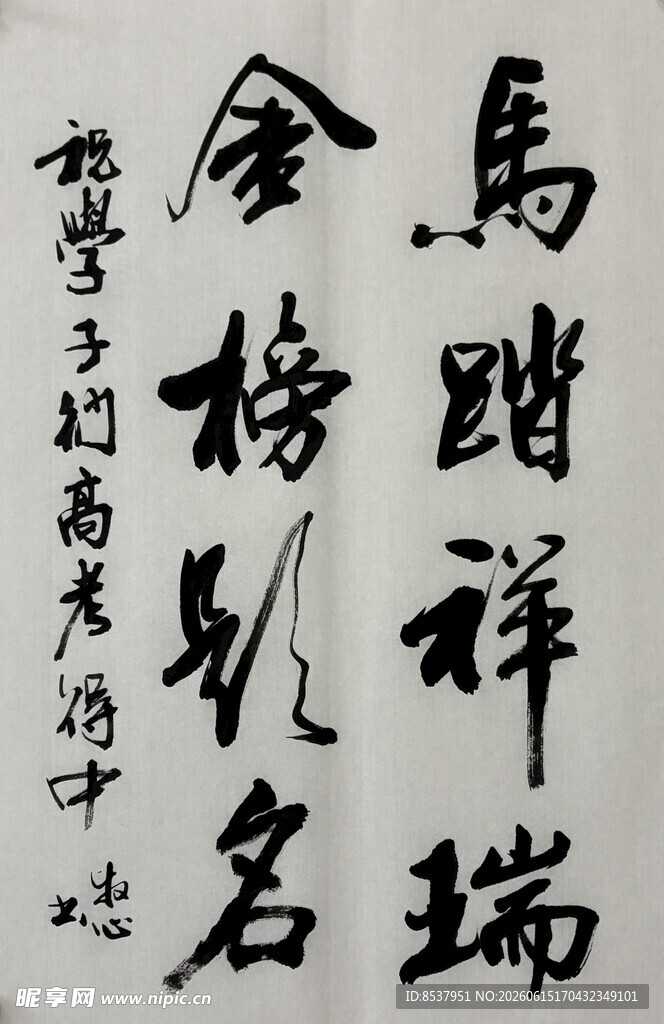 馬踏祥瑞
金榜題名
祝學子们高考得中
书
昵享网 www.nipic.cn
ID:8537951 NO:20260615170432349101